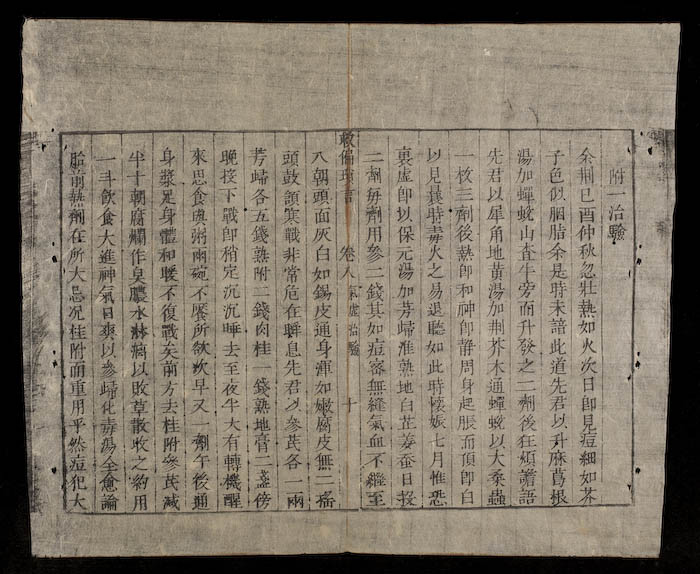 附一治驗
余荆己酉仲秋忽壯熱如火次日即見痘細如芥
子色似胭脂余是時未諳此道先君以升麻葛根
湯加蟬蛻山査牛旁而升發之二劑後狂煩譫語
先君以犀角地黃湯加荆芥木通蟬蛻以大桑蟲
一枚三劑後熱即和神即靜周身起脹而頂即白
以見曩時毒火之易退聽如此時懷娠七月惟恐
裏虛即以保元湯加芎歸淮熟地白芷姜蚕日投
二劑每劑用參二錢其如痘密無縫氣血不繼至
救偏瑣言 卷八 氣虛治驗 十
八朝頭面灰白如錫皮通身渾如嫩腐皮無二搖
頭鼓頷寒戰非常危在瞬息先君以參芪各一兩
芎歸各五錢熟附二錢肉桂一錢熟地膏二盞傍
晚投下戰即稍定沉沉睡去至夜半大有轉機醒
來思食與粥兩碗不饜所欲次早又一劑午後通
身漿足身體和暖不復戰矣前方去桂附參芪減
半十朝腐爛作臭膿水淋漓以敗草散收之約用
一斗飲食大進神氣日爽以參歸化毒湯全愈論
胎前熱劑在所大忌況桂附而重用乎然痘犯大